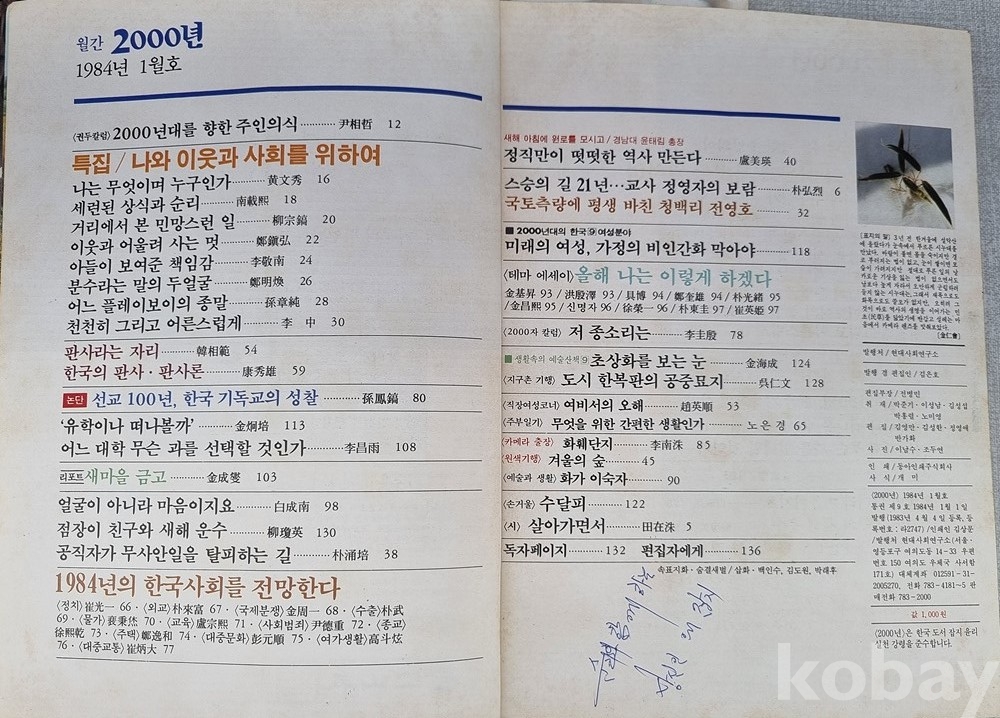 월간 2000년
1984년 1월호
〈권두칼럼〉 2000년대를 향한 주인의식 ………… 尹相哲 12
특집 / 나와 이웃과 사회를 위하여
나는 무엇이며 누구인가 ………… 黄文秀 16
세련된 상식과 순리 ………… 南載熙 18
거리에서 본 민망스런 일 ………… 柳宗鎬 20
이웃과 어울려 사는 멋 ………… 鄭鎭弘 22
아들이 보여준 책임감 ………… 李敬南 24
분수라는 말의 두얼굴 ………… 鄭明煥 26
어느 플레이보이의 종말 ………… 孫章純 28
천천히 그리고 어른스럽게 ………… 李 中 30
판사라는 자리 ………… 韓相範 54
한국의 판사·판사론 ………… 康秀雄 59
논단 선교 100년, 한국 기독교의 성찰 ………… 孫鳳鎬 80
‘유학이나 떠나볼까’ ………… 金炯培 113
어느 대학 무슨 과를 선택할 것인가 ………… 李昌雨 108
리포트 새마을 금고 ………… 金成燮 103
얼굴이 아니라 마음이지요 ………… 白成南 98
점장이 친구와 새해 운수 ………… 柳瓊英 130
공직자가 무사안일을 탈피하는 길 ………… 朴涌培 38
1984년의 한국사회를 전망한다
〈정치〉 崔光一 66 · 〈외교〉 朴來富 67 · 〈국제분쟁〉 金周一 68 · 〈수출〉 朴武
69 · 〈물가〉 裵秉烋 70 · 〈교육〉 盧宗熙 71 · 〈사회범죄〉 尹德重 72 · 〈종교〉
徐熙乾 73 · 〈주택〉 鄭逸和 74 · 〈대중문화〉 彭元順 75 · 〈여가생활〉 高斗炫
76 · 〈대중교통〉 崔炳大 77
새해 아침에 원로를 모시고 / 경남대 윤태림 총장
정직만이 떳떳한 역사 만든다 ………… 盧美瑛 40
스승의 길 21년…교사 정영자의 보람 ………… 朴弘烈 6
국토측량에 평생 바친 청백리 전영호 ………… 32
■ 2000년대의 한국⑨ 여성분야
미래의 여성, 가정의 비인간화 막아야 ………… 118
〈테마 에세이〉 올해 나는 이렇게 하겠다
金基昇 93 / 洪殷澤 93 / 具博 94 / 鄭奎雄 94 / 朴光緖 95
/ 金昌熙 95 / 신명자 96 / 徐榮一 96 / 朴東圭 97 / 崔英姫 97
〈2000자 칼럼〉 저 종소리는 ………… 李圭殷 78
■ 생활속의 예술산책⑨ 초상화를 보는 눈 ………… 金海成 124
〈지구촌 기행〉 도시 한복판의 공중묘지 ………… 吳仁文 128
〈직장여성코너〉 여비서의 오해 ………… 趙英順 53
〈주부일기〉 무엇을 위한 간편한 생활인가 ………… 노은경 65
〈카메라 출장〉 화훼단지 ………… 李南洙 85
〈원색기행〉 겨울의 숲 ………… 45
〈예술과 생활〉 화가 이숙자 ………… 90
〈손거울〉 수달피 ………… 122
〈시〉 살아가면서 ………… 田在洙 5
독자페이지 ………… 132 편집자에게 ………… 136
속표지화·숨결새벌 / 삽화·백인수, 김도원, 박래후
〔표지의 말〕 3년 전 한겨울에 설악산
〔金仁會〕
발행처 / 현대사회연구소
발행 겸 편집인 / 김은호
편집부장 / 전병민
취 재 / 박준기·이성남·김성섭
박홍렬·노미영
편 집 / 김영만·김성한·성영애
반가화
사 진 / 이남수·조두연
인 쇄 / 동아인쇄주식회사
사 식 / 개 미
〈2000년〉 1984년 1월호
통권 제9호 1984년 1월 1일
발행 (1983년 4월 4일 등록, 등
록번호 : 라2747) / 인쇄인 김상문
/ 발행처 현대사회연구소(서울·
영등포구 여의도동 14-33 우편
번호 150 여의도 우체국 사서함
171호) 대체계좌 012591-31-
2005270, 전화 783-4181~5 판
매전화 783-2000
값 1,000원
〈2000년〉은 한국 도서 잡지 윤리
실천 강령을 준수합니다.
kobay